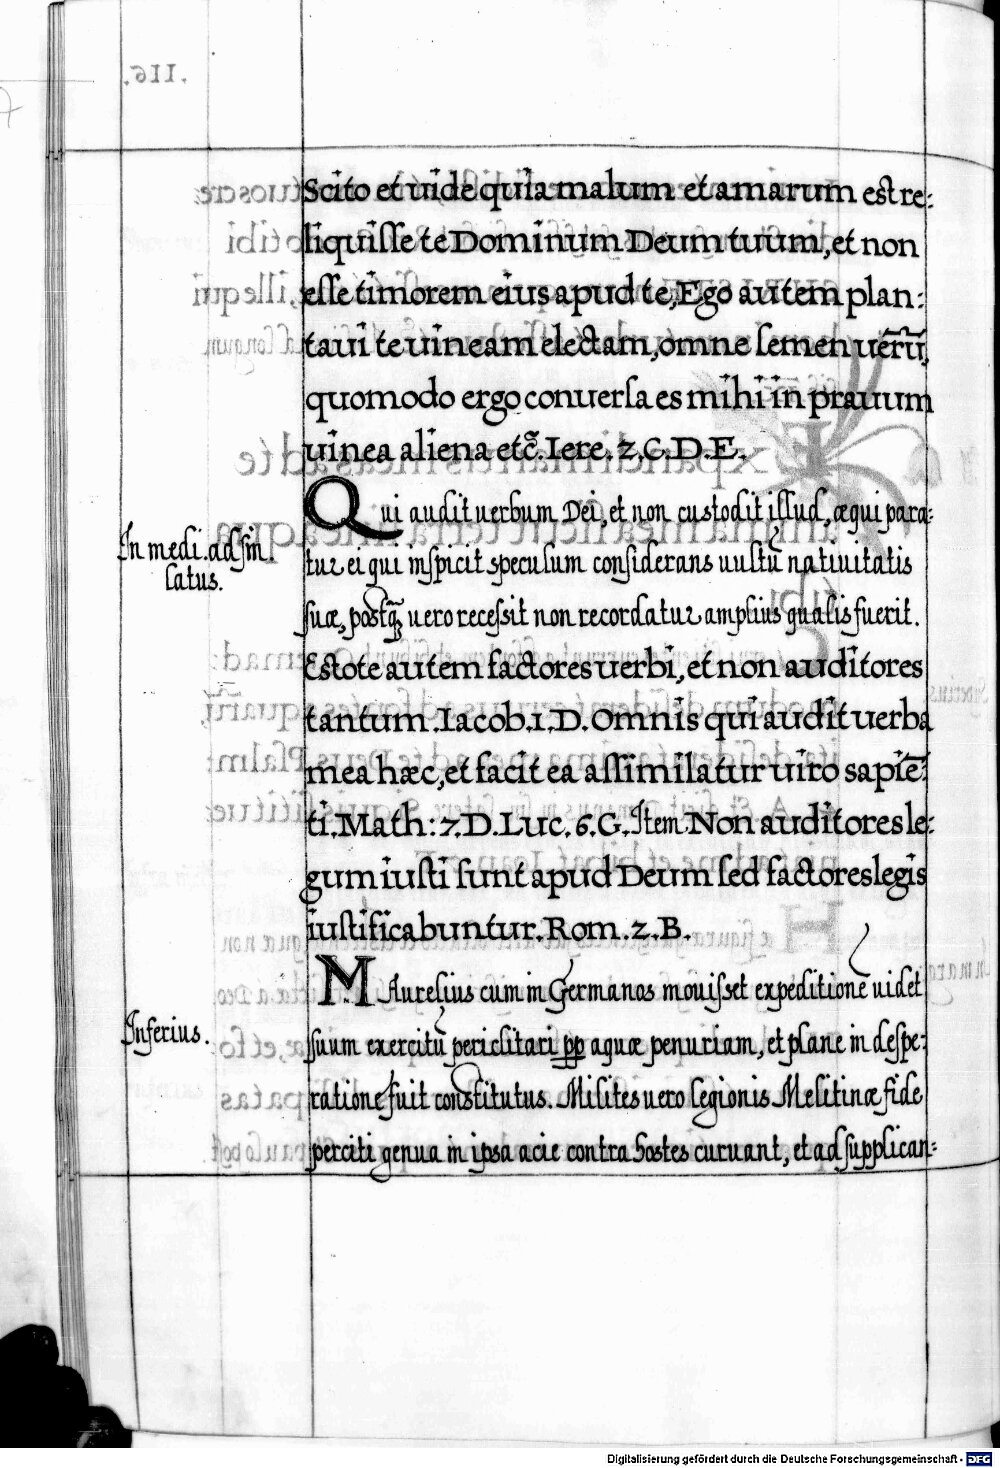 Scito et uide quia malum et amarum est re:
liquisse te Dominum Deum tuum, et non
esse timorem eius apud te, Ego autem plan:
taui te uineam electam, omne semen uerũ,
quomodo ergo conuersa es mihi in prauum
uinea aliena etc̃. Iere. 2. C. D. E.
Qui audit uerbum Dei, et non custodit illud, æqui para:
In medi. ad sin
latus.
tur ei qui inspicit speculum considerans uultũ natiuitatis
suæ, postq̃ uero recessit non recordatur amplius qualis fuerit.
Estote autem factores uerbi, et non auditores
tantum. Iacob. 1. D. Omnis qui audit uerba
mea hæc, et facit ea assimilatur uiro sapiẽ:
ti. Math: 7. D. Luc. 6. G. Item. Non auditores le:
gum iusti sunt apud Deum sed factores legis
iustificabuntur. Rom. 2. B.
M Aurelius cum in Germanos mouisset expeditionẽ uidet
Inferius.
suum exercitũ periclitari pp aquæ penuriam, et plane in despe:
ratione fuit constitutus. Milites uero legionis Melitinæ fide
perciti genua in ipsa acie contra hostes curuant, et ad supplican:
Digitalisierung gefördert durch die Deutsche Forschungsgemeinschaft - DFG